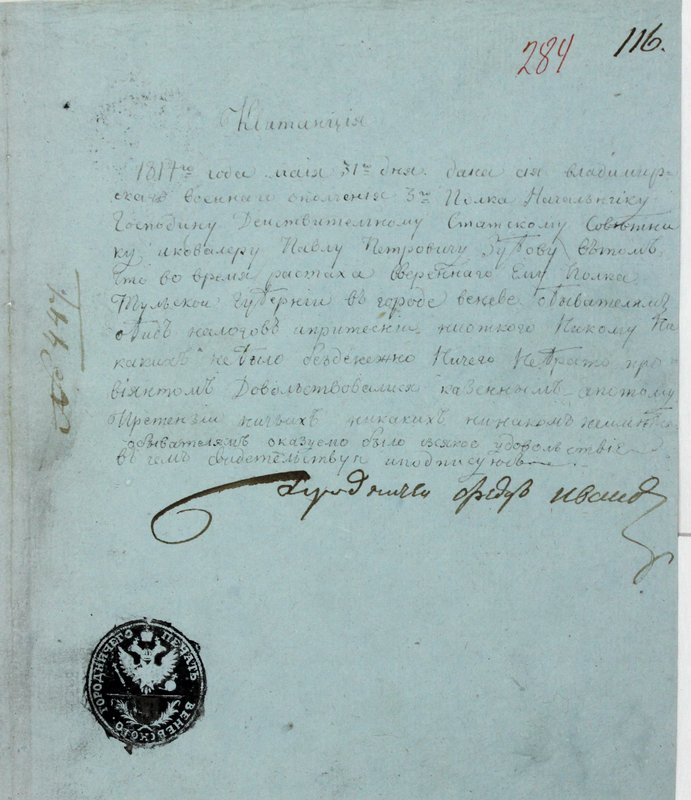 284 116.
Квитанція
1814го года маія 31го дня дана сія владимир-
скаго военнаго ополченія 3го Полка Началнику
Господину Действителному Статскому Советни
ку икавалеру Павлу Петровичу Зубову вътомъ,
что во время растахаввереннаго Ему Полка
Тульской Губерніи въ городе веневе обывателямъ
обидъ налоговъ ипритесни Никому Ни
какихъ небыло безденежно Ничего Небрато про
віянтомъ Довольствовалися казеннымъ, апотому
Претензіи никакихъ нинакомъ
обывателямъ оказуемо было всякое удовольствіе
въчемъ свидетельствую иподписуюсь
Городничей Федоръ Иванов
№ 447.
ПЕЧАТЬ ВЕНЕВСКОГО ГОРОДНИЧЕГО